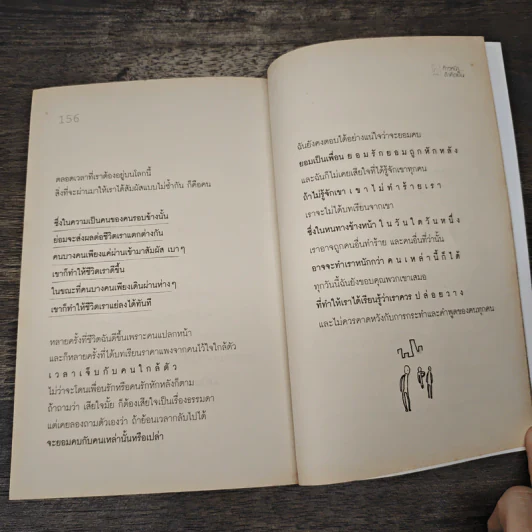 156
ตลอดเวลาที่เราต้องอยู่บนโลกนี้
สิ่งที่จะผ่านมาให้เราได้สัมผัสแบบไม่ซ้ำกัน ก็คือคน
ซึ่งในความเป็นคนของคนรอบข้างนั้น
ย่อมจะส่งผลต่อชีวิตเราแตกต่างกัน
คนบางคนเพียงแค่ผ่านเข้ามาสัมผัส เบาๆ
เขาก็ทำให้ชีวิตเราดีขึ้น
ในขณะที่คนบางคนเพียงเดินผ่านห่างๆ
เขาก็ทำให้ชีวิตเราแย่ลงได้ทันที
หลายครั้งที่ชีวิตฉันดีขึ้นเพราะคนแปลกหน้า
และก็หลายครั้งที่ได้บทเรียนราคาแพงจากคนไว้ใจใกล้ตัว
เ ว ล า เ จ็ บ กั บ ค น ใ ก ล้ ตั ว
ไม่ว่าจะโดนเพื่อนรักหรือคนรักหักหลังก็ตาม
ถ้าถามว่า เสียใจมั้ย ก็ต้องเสียใจเป็นเรื่องธรรมดา
แต่เคยลองถามตัวเองว่า ถ้าย้อนเวลากลับไปได้
จะยอมคบกับคนเหล่านั้นหรือเปล่า
ฉันยังคงตอบได้อย่างแน่ใจว่าจะยอมคบ
ยอมเป็นเพื่อน ย อ ม รั ก ย อ ม ถู ก หั ก ห ลั ง
และฉันก็ไม่เคยเสียใจที่ได้รู้จักเขาทุกคน
ถ้าไม่รู้จักเขา เ ข า ไ ม่ ทำ ร้ า ย เ ร า
เราจะไม่ได้บทเรียนจากเขา
ซึ่งในหนทางข้างหน้า ใ น วั น ใ ด วั น ห นึ่ ง
เราอาจถูกคนอื่นทำร้าย และคนอื่นที่ว่านั้น
อาจจะทำเราหนักกว่า ค น เ ห ล่ า นี้ ก็ ไ ด้
ทุกวันนี้ฉันยังขอบคุณพวกเขาเสมอ
ที่ทำให้เราได้เรียนรู้ว่าเราควร ป ล่ อ ย ว า ง
และไม่ควรคาดหวังกับการกระทำและคำพูดของคนทุกคน